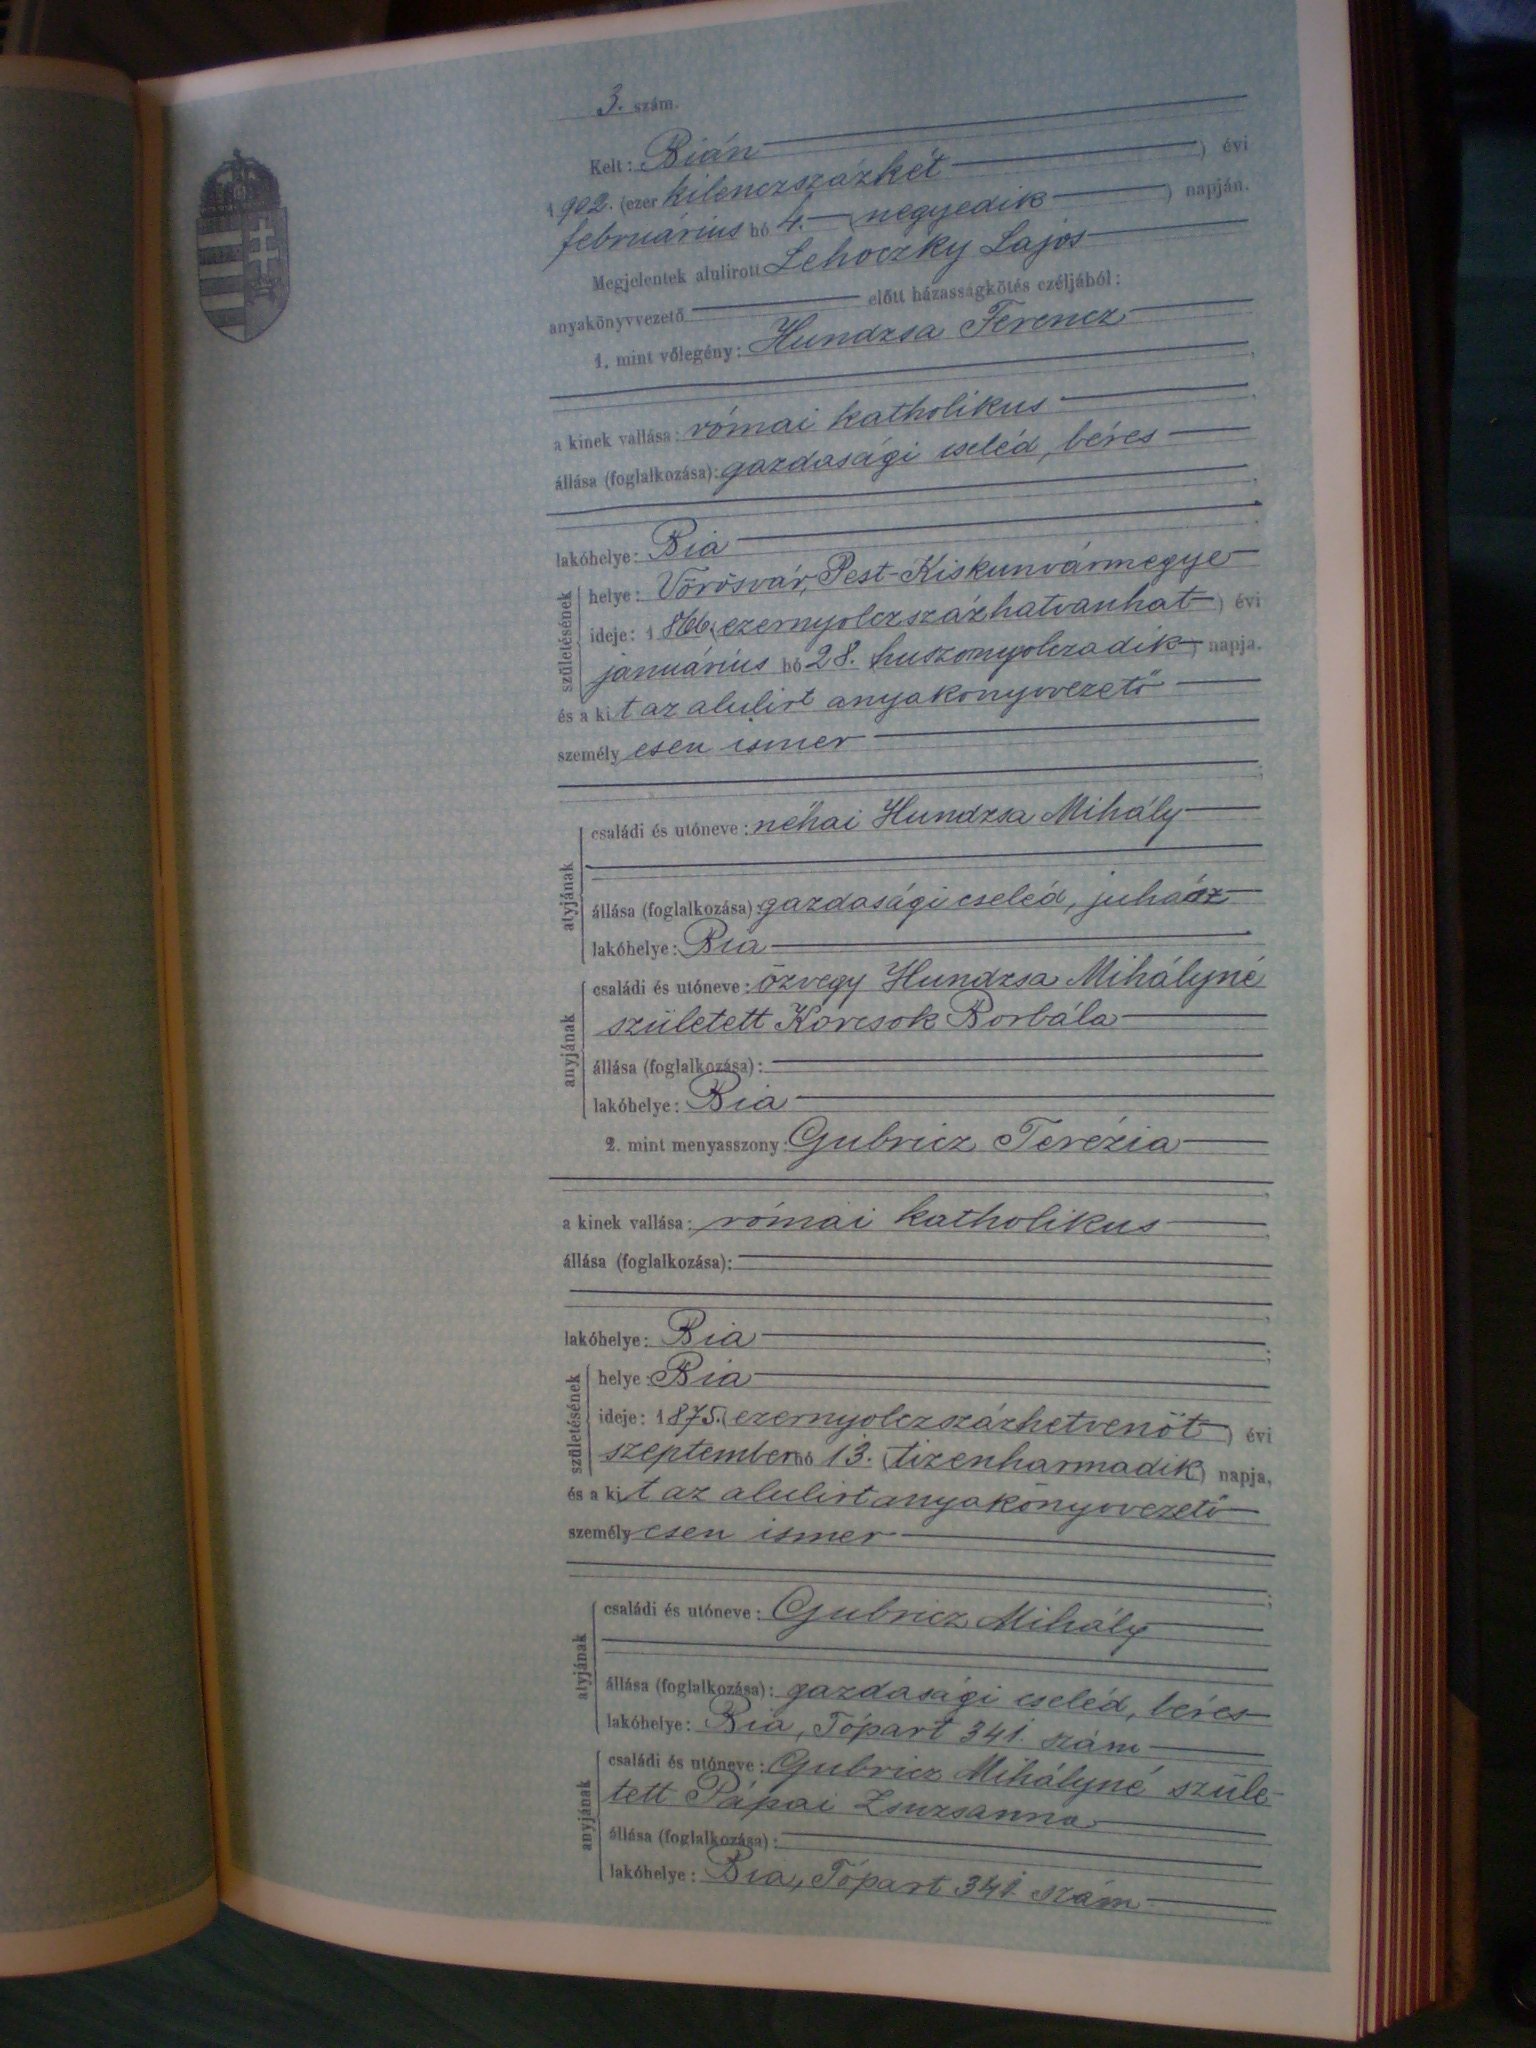 3. szám.
Kelt: Bián
1902. (ezer kilenczszázkét ) évi
februárius hó 4. (negyedik ) napján.
Megjelentek alulírott Lehoczky Lajos
anyakönyvvezető előtt házasságkötés czéljából:
1. mint vőlegény: Hundzsa Ferencz
a kinek vallása: római katholikus
állása (foglalkozása): gazdasági cseléd, béres
lakóhelye: Bia
születésének
helye: Vörösvár, Pest-Kiskunvármegye
ideje: 1866. (ezernyolczszázhatvanhat ) évi
januárius hó 28. (huszonyolczadik ) napja.
és a kit az alulirt anyakönyvvezető
személyesen ismer
atyjának
családi és utóneve: néhai Hundzsa Mihály
állása (foglalkozása): gazdasági cseléd, juhász
lakóhelye: Bia
anyjának
családi és utóneve: özvegy Hundzsa Mihályné
született Korcsok Borbála
állása (foglalkozása):
lakóhelye: Bia
2. mint menyasszony: Gubricz Terézia
a kinek vallása: római katholikus
állása (foglalkozása):
lakóhelye: Bia
születésének
helye: Bia
ideje: 1875. (ezernyolczszázhetvenöt ) évi
szeptember hó 13. (tizenharmadik ) napja,
és a kit az alulirt anyakönyvvezető
személyesen ismer
atyjának
családi és utóneve: Gubricz Mihály
állása (foglalkozása): gazdasági cseléd, béres
lakóhelye: Bia, Tópart 341. szám
anyjának
családi és utóneve: Gubricz Mihályné szüle-
tett Pápai Zsuzsanna
állása (foglalkozása):
lakóhelye: Bia, Tópart 341. szám